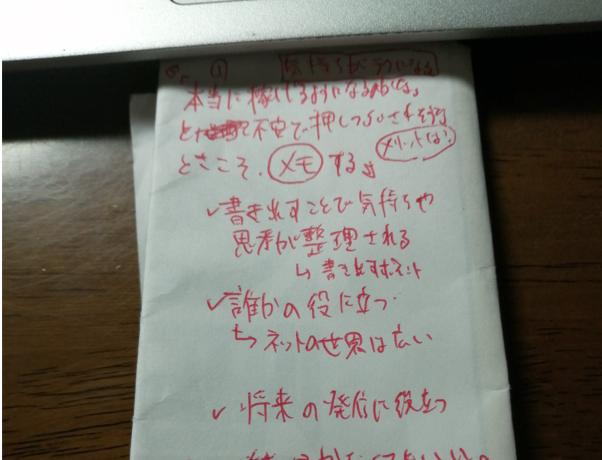 ① 気持ちがラクになる
本当に稼げるようになるかな。
と 不安で押しつぶされそうな
ときこそ、メモする。
メリットは?
✓書き出すことで気持ちや
思考が整理される
↳書き出す
✓誰かの役に立つ
↳ネットの世界は広い
✓将来の発信に役立つ